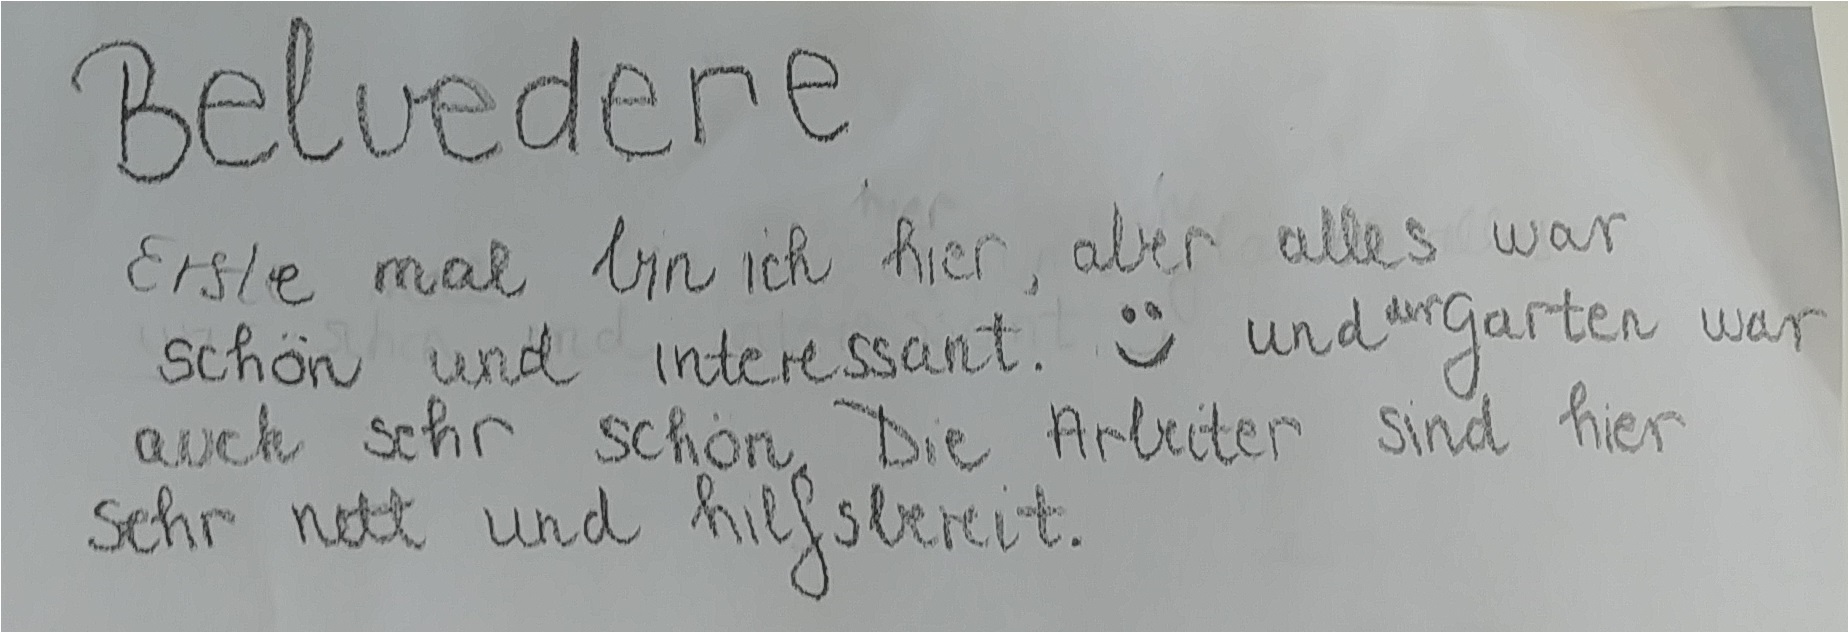 Belvedere
Erste mal bin ich hier, aber alles war
schön und interessant. :) und der Garten war
auch sehr schön. Die Arbeiter sind hier
sehr nett und hilfsbereit.